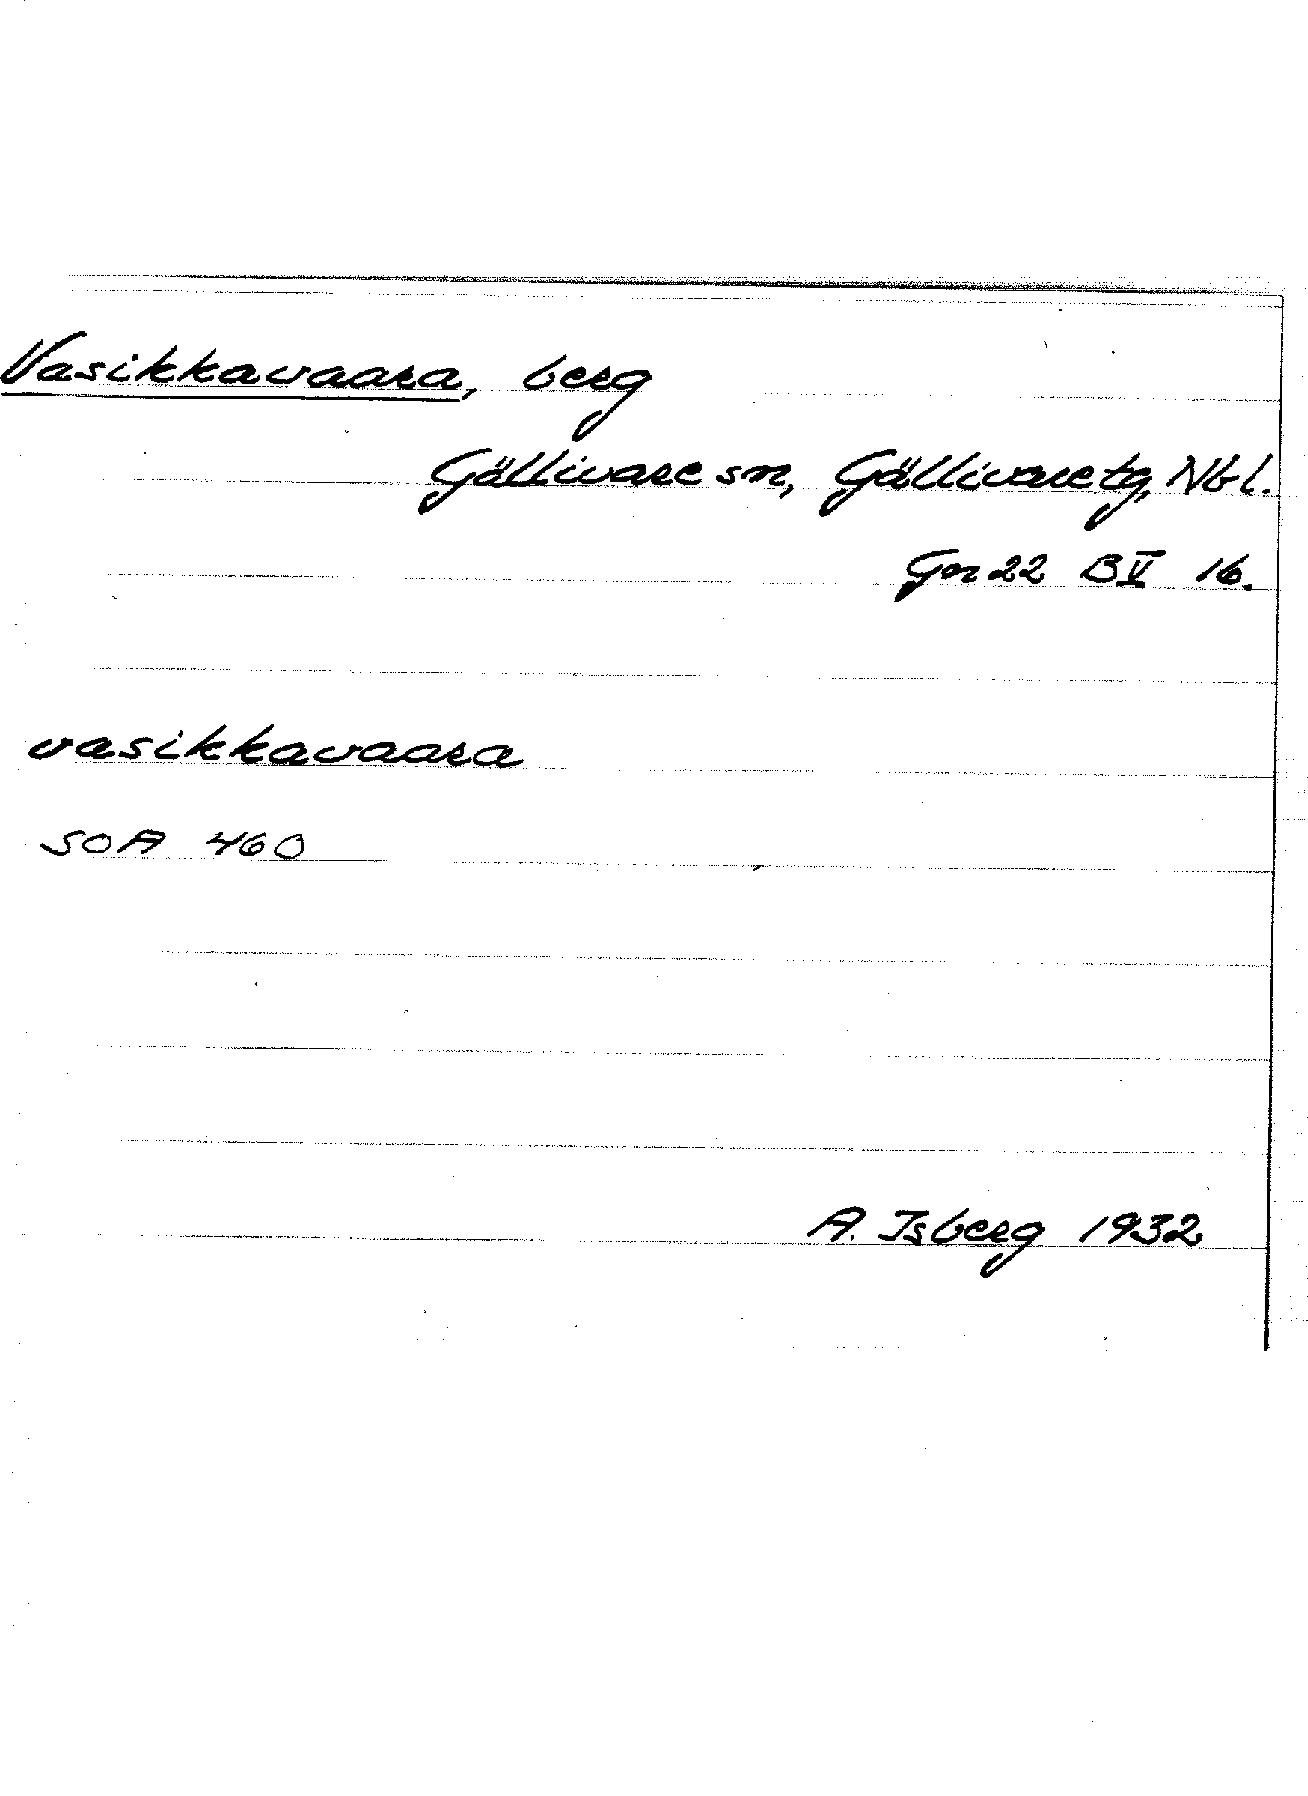 Vasikkavaara, berg
Gällivare sn, Gällivare tg, Nbl.
Gr 22 B V 16.
vasikkavaara
SOA 460
A. Isberg 1932